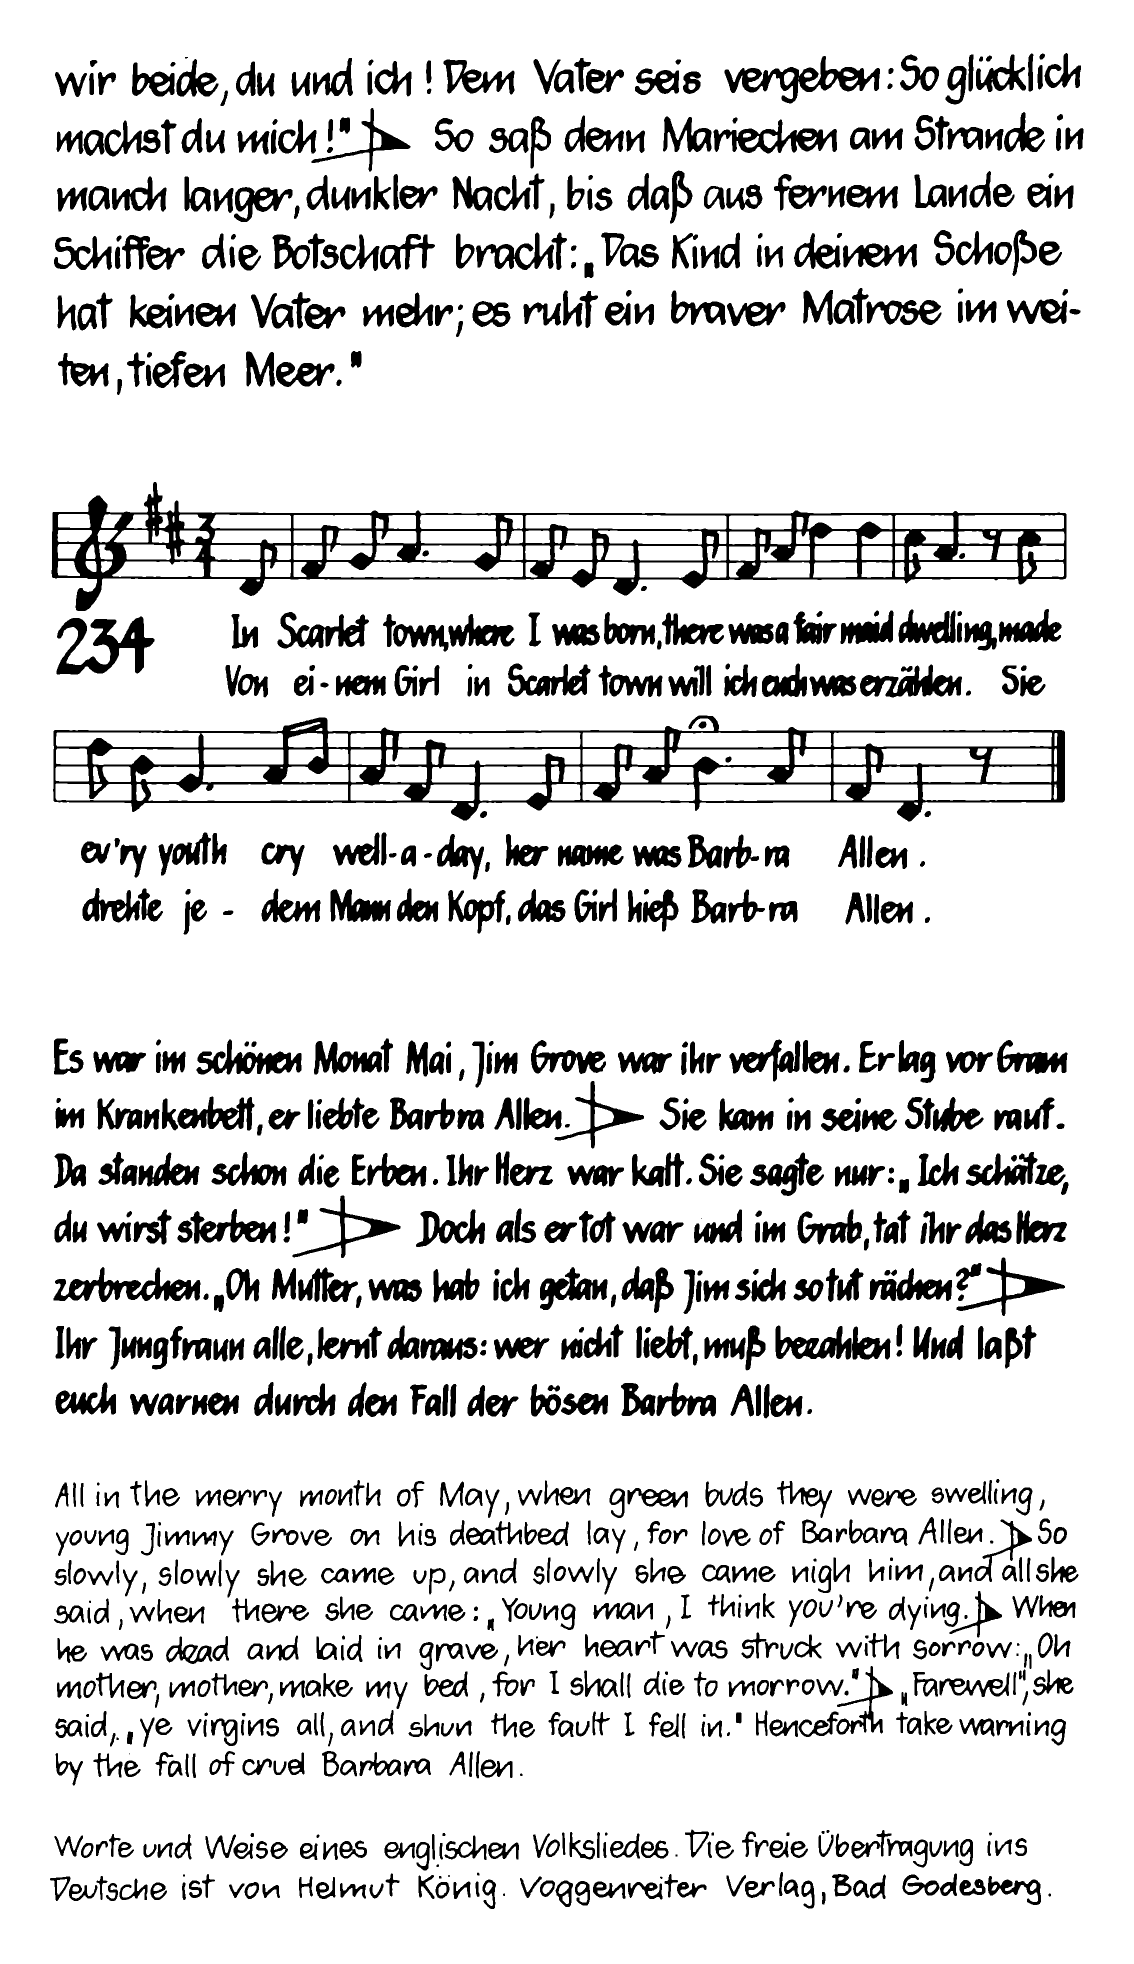 wir beide, du und ich! Dem Vater seis vergeben: So glücklich
machst du mich!" So saß denn Mariechen am Strande in
manch langer, dunkler Nacht, bis daß aus fernem Lande ein
Schiffer die Botschaft bracht: „Das Kind in deinem Schoße
hat keinen Vater mehr; es ruht ein braver Matrose im wei-
ten, tiefen Meer."
3
4
234
In Scarlet town, where I was born, there was a fair maid dwelling, made
Von ei-nem Girl in Scarlet town will ich euch was erzählen. Sie
ev'ry youth cry well-a-day, her name was Barb-ra Allen.
drehte je - dem Mann den Kopf, das Girl hieß Barb-ra Allen.
Es war im schönen Monat Mai, Jim Grove war ihr verfallen. Er lag vor Gram
im Krankenbett, er liebte Barbra Allen. Sie kam in seine Stube rauf.
Da standen schon die Erben. Ihr Herz war kalt. Sie sagte nur: „Ich schätze,
du wirst sterben!" Doch als er tot war und im Grab, tat ihr das Herz
zerbrechen. „Oh Mutter, was hab ich getan, daß Jim sich so tut rächen?"
Ihr Jungfraun alle, lernt daraus: wer nicht liebt, muß bezahlen! Und laßt
euch warnen durch den Fall der bösen Barbra Allen.
All in the merry month of May, when green buds they were swelling,
young Jimmy Grove on his deathbed lay, for love of Barbara Allen. So
slowly, slowly she came up, and slowly she came nigh him, and all she
said, when there she came: „Young man, I think you're dying. When
he was dead and laid in grave, her heart was struck with sorrow: „Oh
mother, mother, make my bed, for I shall die to morrow." „Farewell", she
said, „ye virgins all, and shun the fault I fell in." Henceforth take warning
by the fall of cruel Barbara Allen.
Worte und Weise eines englischen Volksliedes. Die freie Übertragung ins
Deutsche ist von Helmut König. Voggenreiter Verlag, Bad Godesberg.